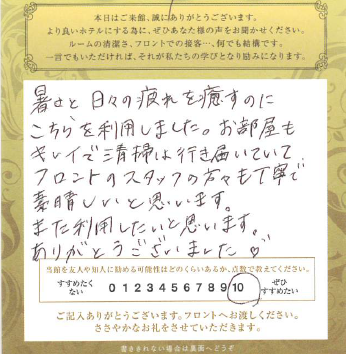 本日はご来館、誠にありがとうございます。
より良いホテルにする為に、ぜひあなた様の声をお聞かせください。
ルームの清潔さ、フロントでの接客…、何でも結構です。
一言でもいただければ、それが私たちの学びとなり励みになります。
暑さと日々の疲れを癒すのに
こちらを利用しました。お部屋も
キレイで清掃は行き届いていて、
フロントのスタッフの方々も丁寧で
素晴しいと思います。
また利用したいと思います。
ありがとうございました♡
当館を友人や知人に勧める可能性はどのくらいあるか、点数で教えてください。
すすめたくない 0 1 2 3 4 5 6 7 8 9 10 ぜひすすめたい
ご記入ありがとうございます。フロントへお渡しください。
ささやかなお礼をさせていただきます。
書ききれない場合は裏面へどうぞ